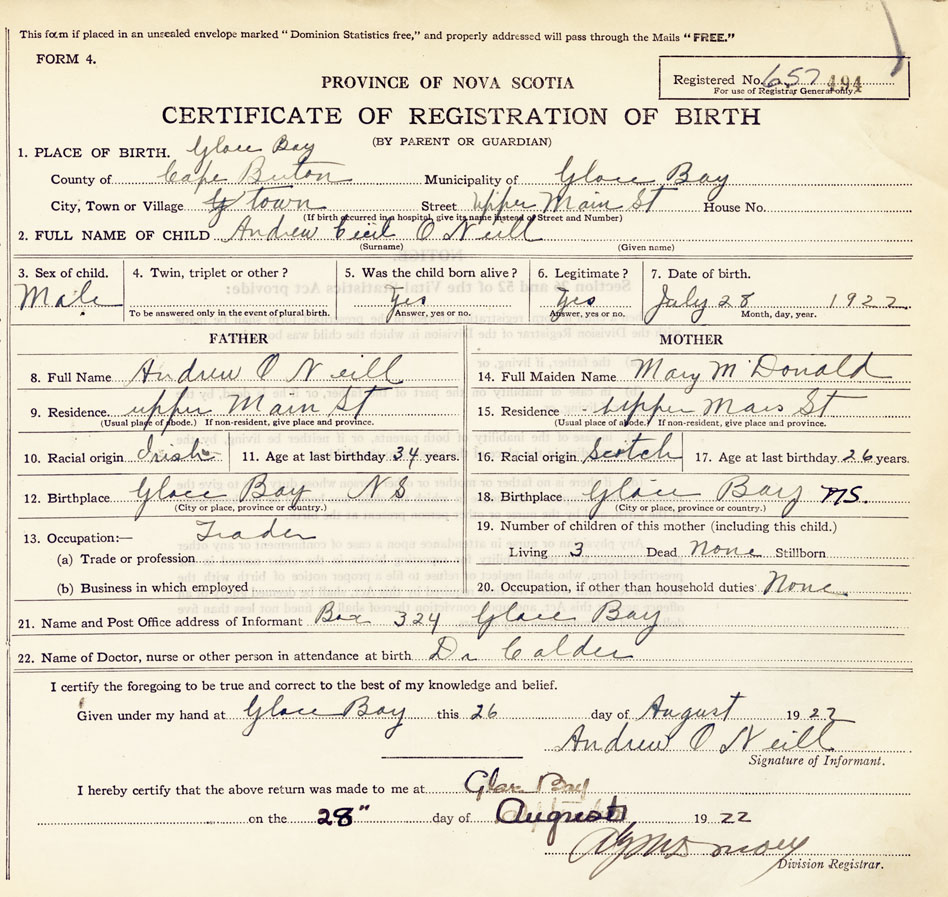 This form if placed in an unsealed envelope marked "Dominion Statistics free," and properly addressed will pass through the Mails "FREE."
FORM 4.
PROVINCE OF NOVA SCOTIA
Registered No. 657 494
For use of Registrar General only.
CERTIFICATE OF REGISTRATION OF BIRTH
(BY PARENT OR GUARDIAN)
1. PLACE OF BIRTH. Glace Bay
County of Cape Breton Municipality of Glace Bay
City, Town or Village town Street upper Main St House No.
(If birth occurred in a hospital, give its name instead of Street and Number)
2. FULL NAME OF CHILD Andrew Cecil O Neill
(Surname) (Given name)
3. Sex of child. 4. Twin, triplet or other? 5. Was the child born alive? 6. Legitimate? 7. Date of birth.
Male Yes Yes July 28 1922
To be answered only in the event of plural birth. Answer, yes or no. Answer, yes or no. Month, day, year.
FATHER MOTHER
8. Full Name Andrew O Neill 14. Full Maiden Name Mary McDonald
9. Residence. upper Main St 15. Residence upper Main St
(Usual place of abode.) If non-resident, give place and province. (Usual place of abode.) If non-resident, give place and province.
10. Racial origin Irish 11. Age at last birthday 34 years. 16. Racial origin Scotch 17. Age at last birthday 26 years.
12. Birthplace Glace Bay N S 18. Birthplace Glace Bay NS.
(City or place, province or country.) (City or place, province or country.)
13. Occupation:— Trader 19. Number of children of this mother (including this child.)
(a) Trade or profession Living 3 Dead None Stillborn
(b) Business in which employed 20. Occupation, if other than household duties None
21. Name and Post Office address of Informant Box 324 Glace Bay
22. Name of Doctor, nurse or other person in attendance at birth Dr Calder
I certify the foregoing to be true and correct to the best of my knowledge and belief.
Given under my hand at Glace Bay this 26 day of August 1922
Andrew O Neill
Signature of Informant.
I hereby certify that the above return was made to me at Glace Bay
on the 28" day of August 1922
Division Registrar.